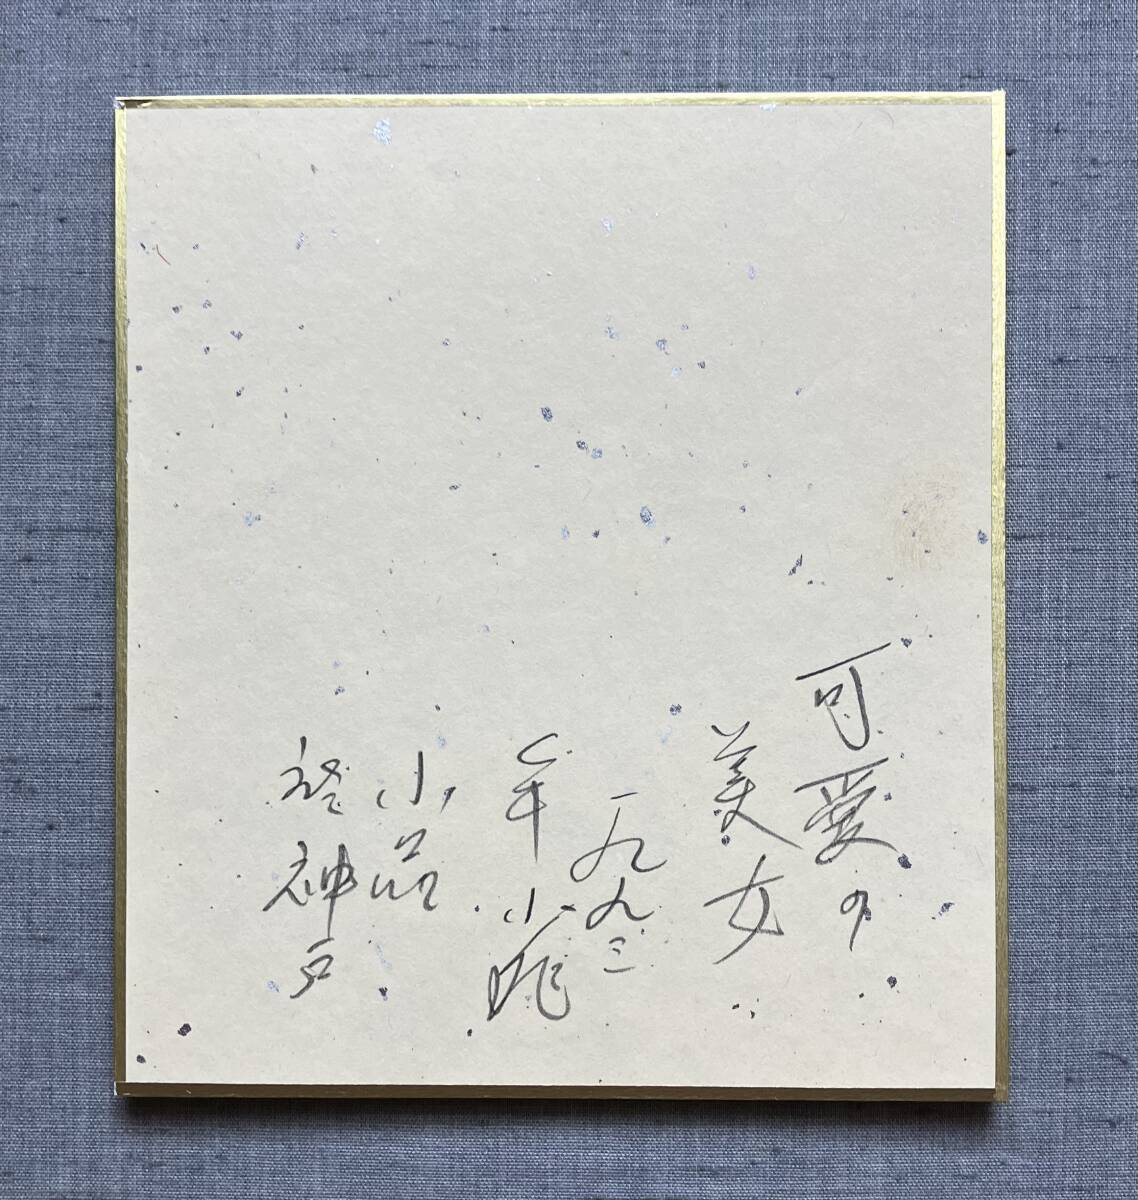 可愛の
美女
一九九三
年小晩
小品
於神戸